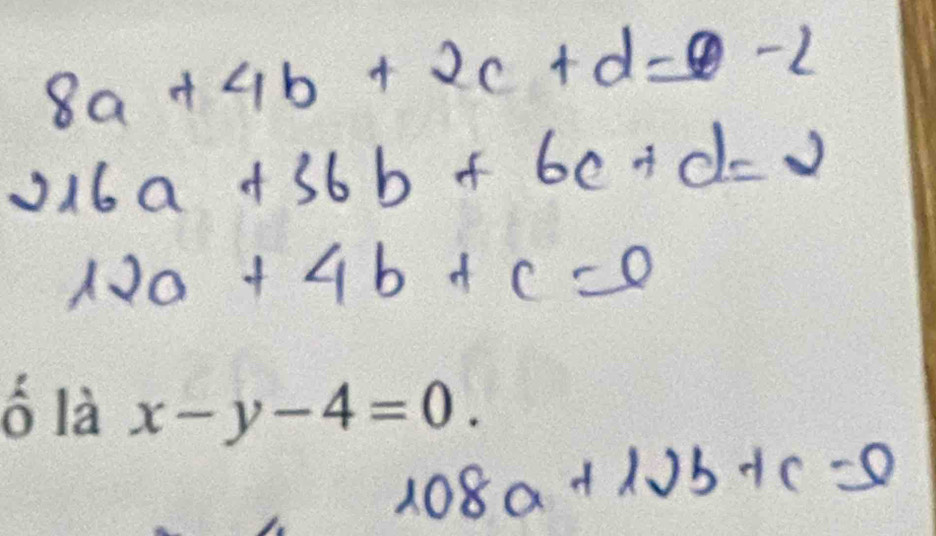 8a + 4b + 2c + d = -2
216a + 36b + 6c + d = 2
12a + 4b + c = 0
ố là x − y − 4 = 0.
108a + 12b + c = 0